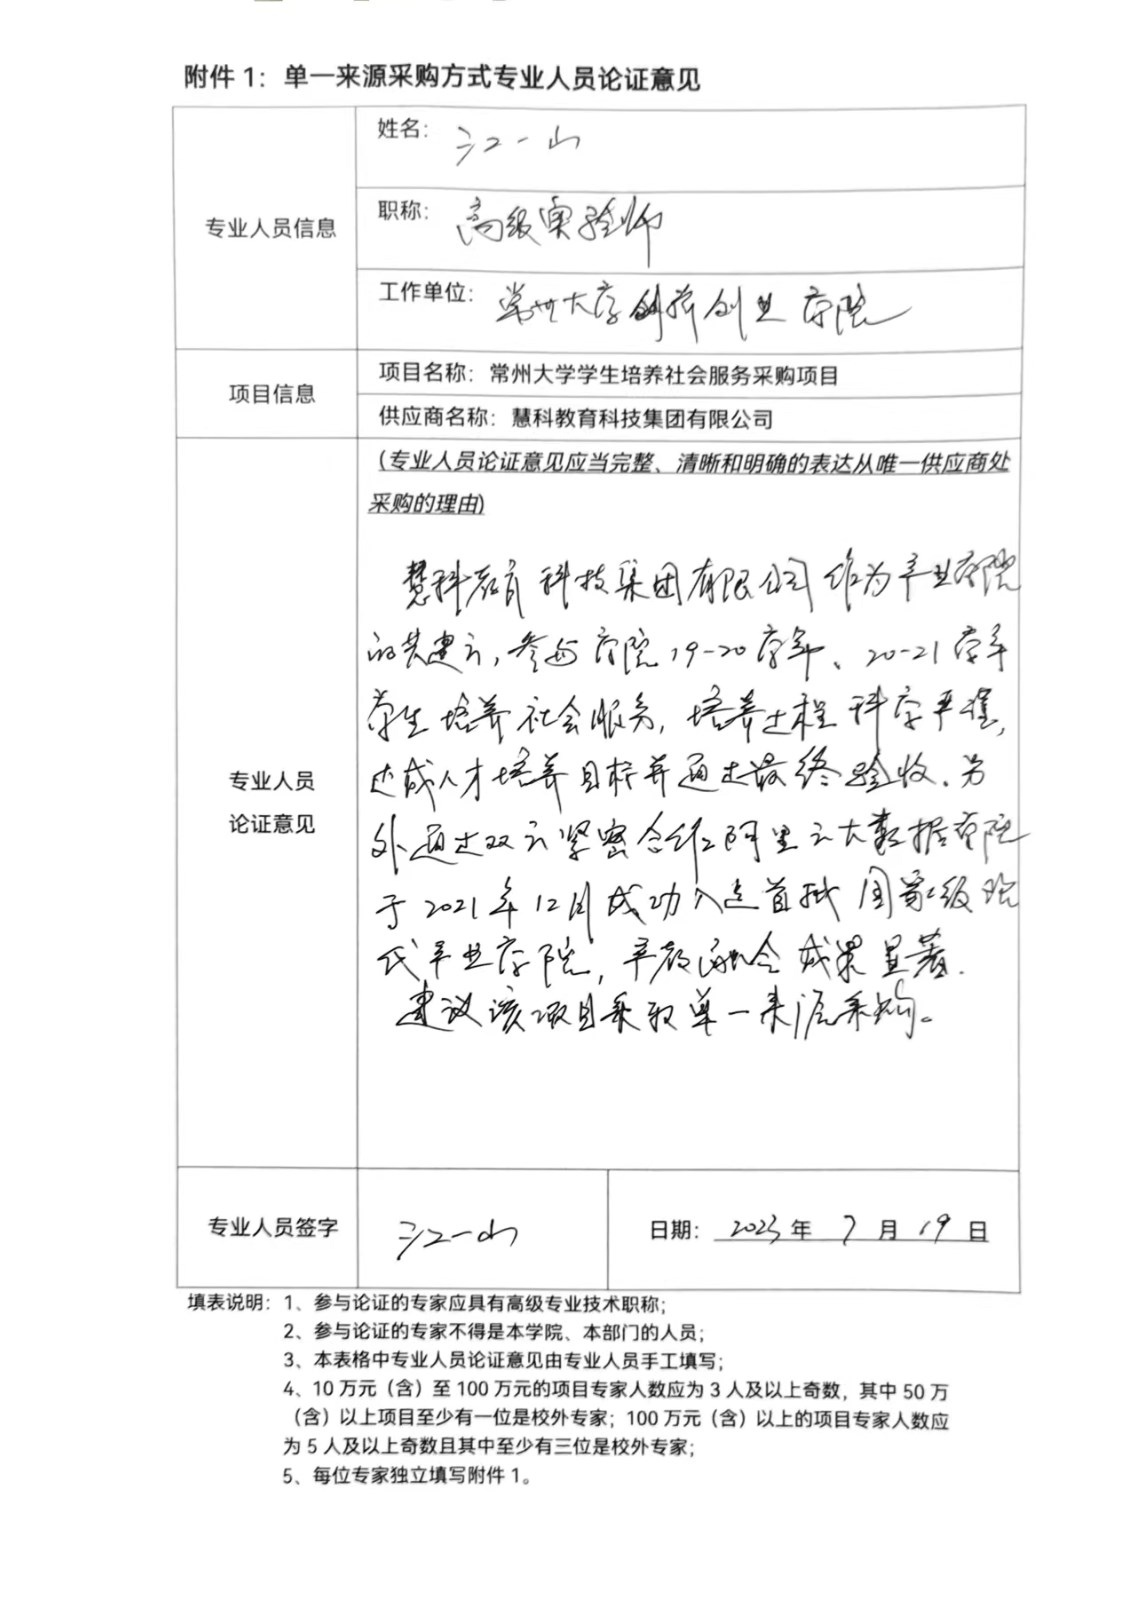 附件1：单一来源采购方式专业人员论证意见
专业人员信息
姓名：江一山
职称：高级实验师
工作单位：常州大学创新创业学院
项目信息
项目名称：常州大学学生培养社会服务采购项目
供应商名称：慧科教育科技集团有限公司
专业人员
论证意见
(专业人员论证意见应当完整、清晰和明确的表达从唯一供应商处
采购的理由)
慧科教育科技集团有限公司作为产业学院
的共建方，参与学院19-20学年、20-21学年
学生培养社会服务，培养过程科学严谨，
达成人才培养目标并通过最终验收。另
外通过双方紧密合作阿里云大数据学院
于2021年12月成功入选首批国家级现
代产业学院，产教融合成果显著.
建议该项目采取单一来源采购。
专业人员签字
江一山
日期：2023年7月19日
填表说明：1、参与论证的专家应具有高级专业技术职称；
2、参与论证的专家不得是本学院、本部门的人员；
3、本表格中专业人员论证意见由专业人员手工填写；
4、10万元（含）至100万元的项目专家人数应为3人及以上奇数，其中50万
（含）以上项目至少有一位是校外专家；100万元（含）以上的项目专家人数应
为5人及以上奇数且其中至少有三位是校外专家；
5、每位专家独立填写附件1。